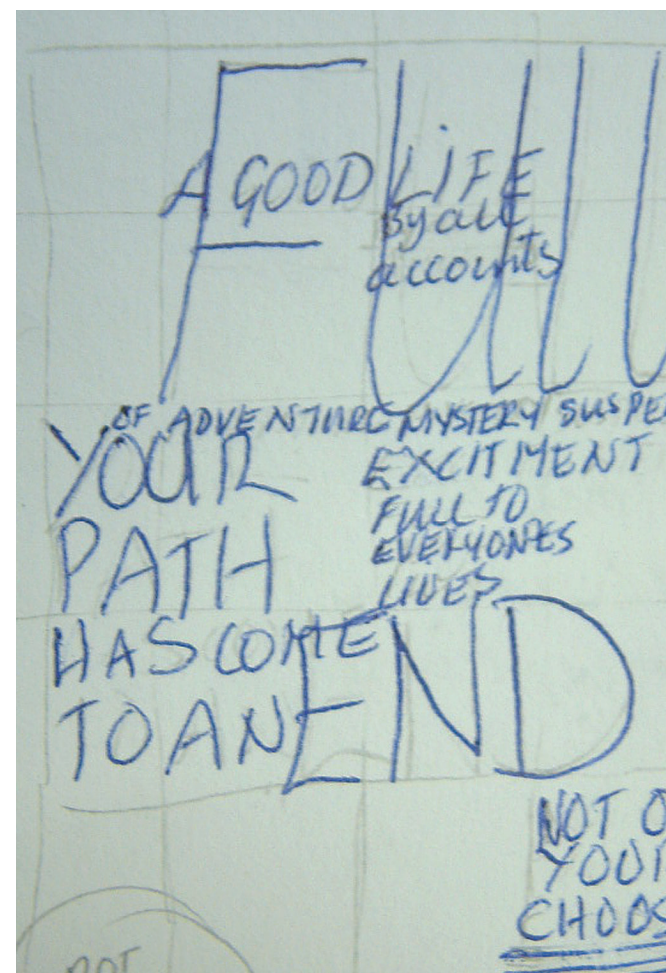 FULL
A GOOD LIFE
By all
accounts
OF ADVENTURE MYSTERY SUSPE
EXCITMENT
FULL TO
EVERYONES
LIVES
YOUR
PATH
HAS COME
TO AN END
NOT O
YOUR
CHOOS